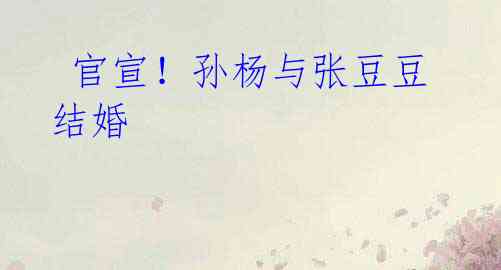 官宣！孙杨与张豆豆
结婚